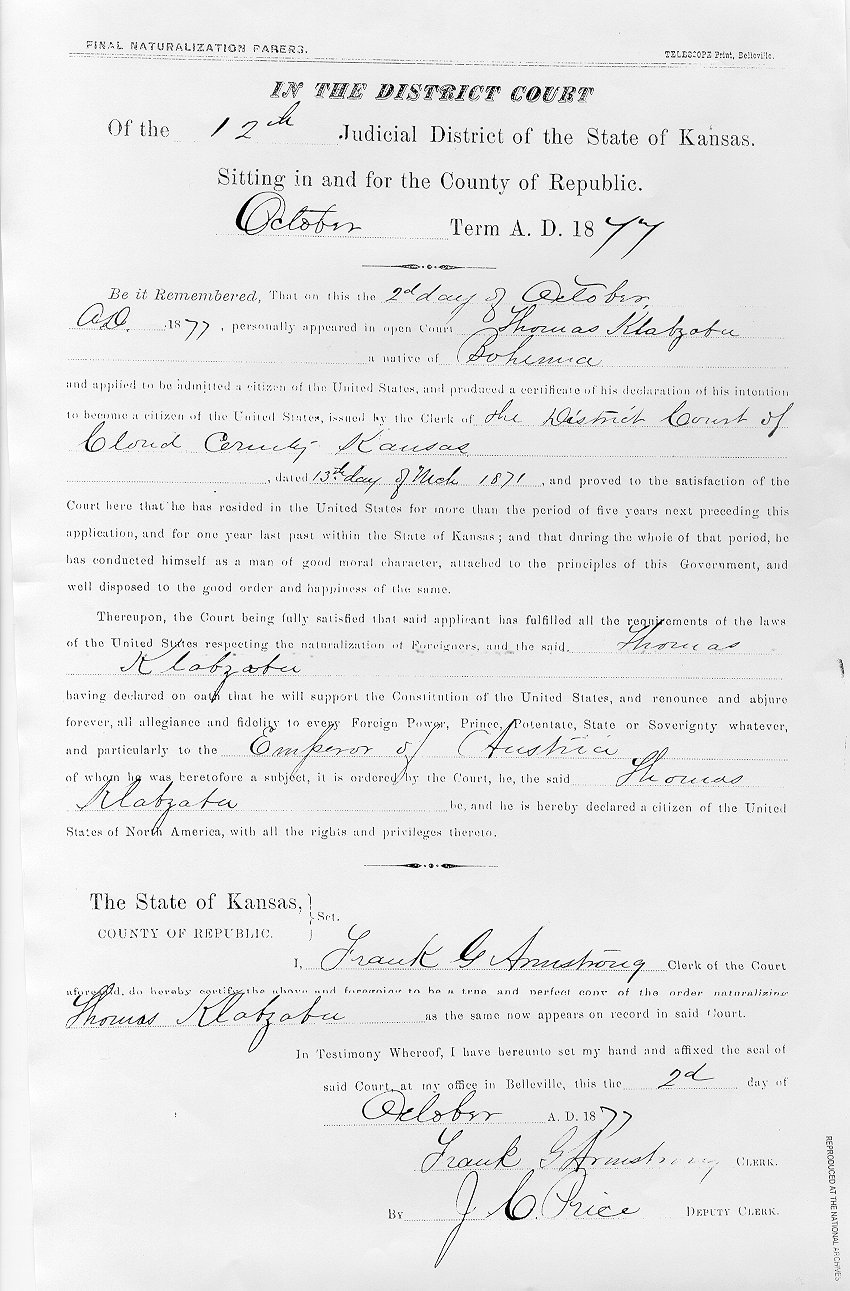 FINAL NATURALIZATION PAPERS.
TELESCOPE Print, Belleville.
IN THE DISTRICT COURT
Of the 12th Judicial District of the State of Kansas.
Sitting in and for the County of Republic.
October Term A. D. 1877
Be it Remembered, That on this the 2d day of October
A.D. 1877, personally appeared in open Court Thomas Klabzabu
a native of Bohemia
and applied to be admitted a citizen of the United States, and produced a certificate of his declaration of his intention
to become a citizen of the United States, issued by the Clerk of the District Court of
Cloud County Kansas
, dated 13th day of Mch 1871, and proved to the satisfaction of the
Court here that he has resided in the United States for more than the period of five years next preceding this
application, and for one year last past within the State of Kansas; and that during the whole of that period, he
has conducted himself as a man of good moral character, attached to the principles of this Government, and
well disposed to the good order and happiness of the same.
Thereupon, the Court being fully satisfied that said applicant has fulfilled all the requirements of the laws
of the United States respecting the naturalization of Foreigners, and the said Thomas
Klabzabu
having declared on oath that he will support the Constitution of the United States, and renounce and abjure
forever, all allegiance and fidelity to every Foreign Power, Prince, Potentate, State or Soverignty whatever,
and particularly to the Emperor of Austria
of whom he was heretofore a subject, it is ordered by the Court, he, the said Thomas
Klabzabu be, and he is hereby declared a citizen of the United
States of North America, with all the rights and privileges thereto.
The State of Kansas, } Sct.
COUNTY OF REPUBLIC.
I, Frank G Armstrong Clerk of the Court
aforesaid, do hereby certify the above and foregoing to be a true and perfect copy of the order naturalizing
Thomas Klabzabu as the same now appears on record in said Court.
In Testimony Whereof, I have hereunto set my hand and affixed the seal of
said Court, at my office in Belleville, this the 2d day of
October A. D. 1877
Frank G Armstrong CLERK.
By J. C. Price DEPUTY CLERK.
REPRODUCED AT THE NATIONAL ARCHIVES